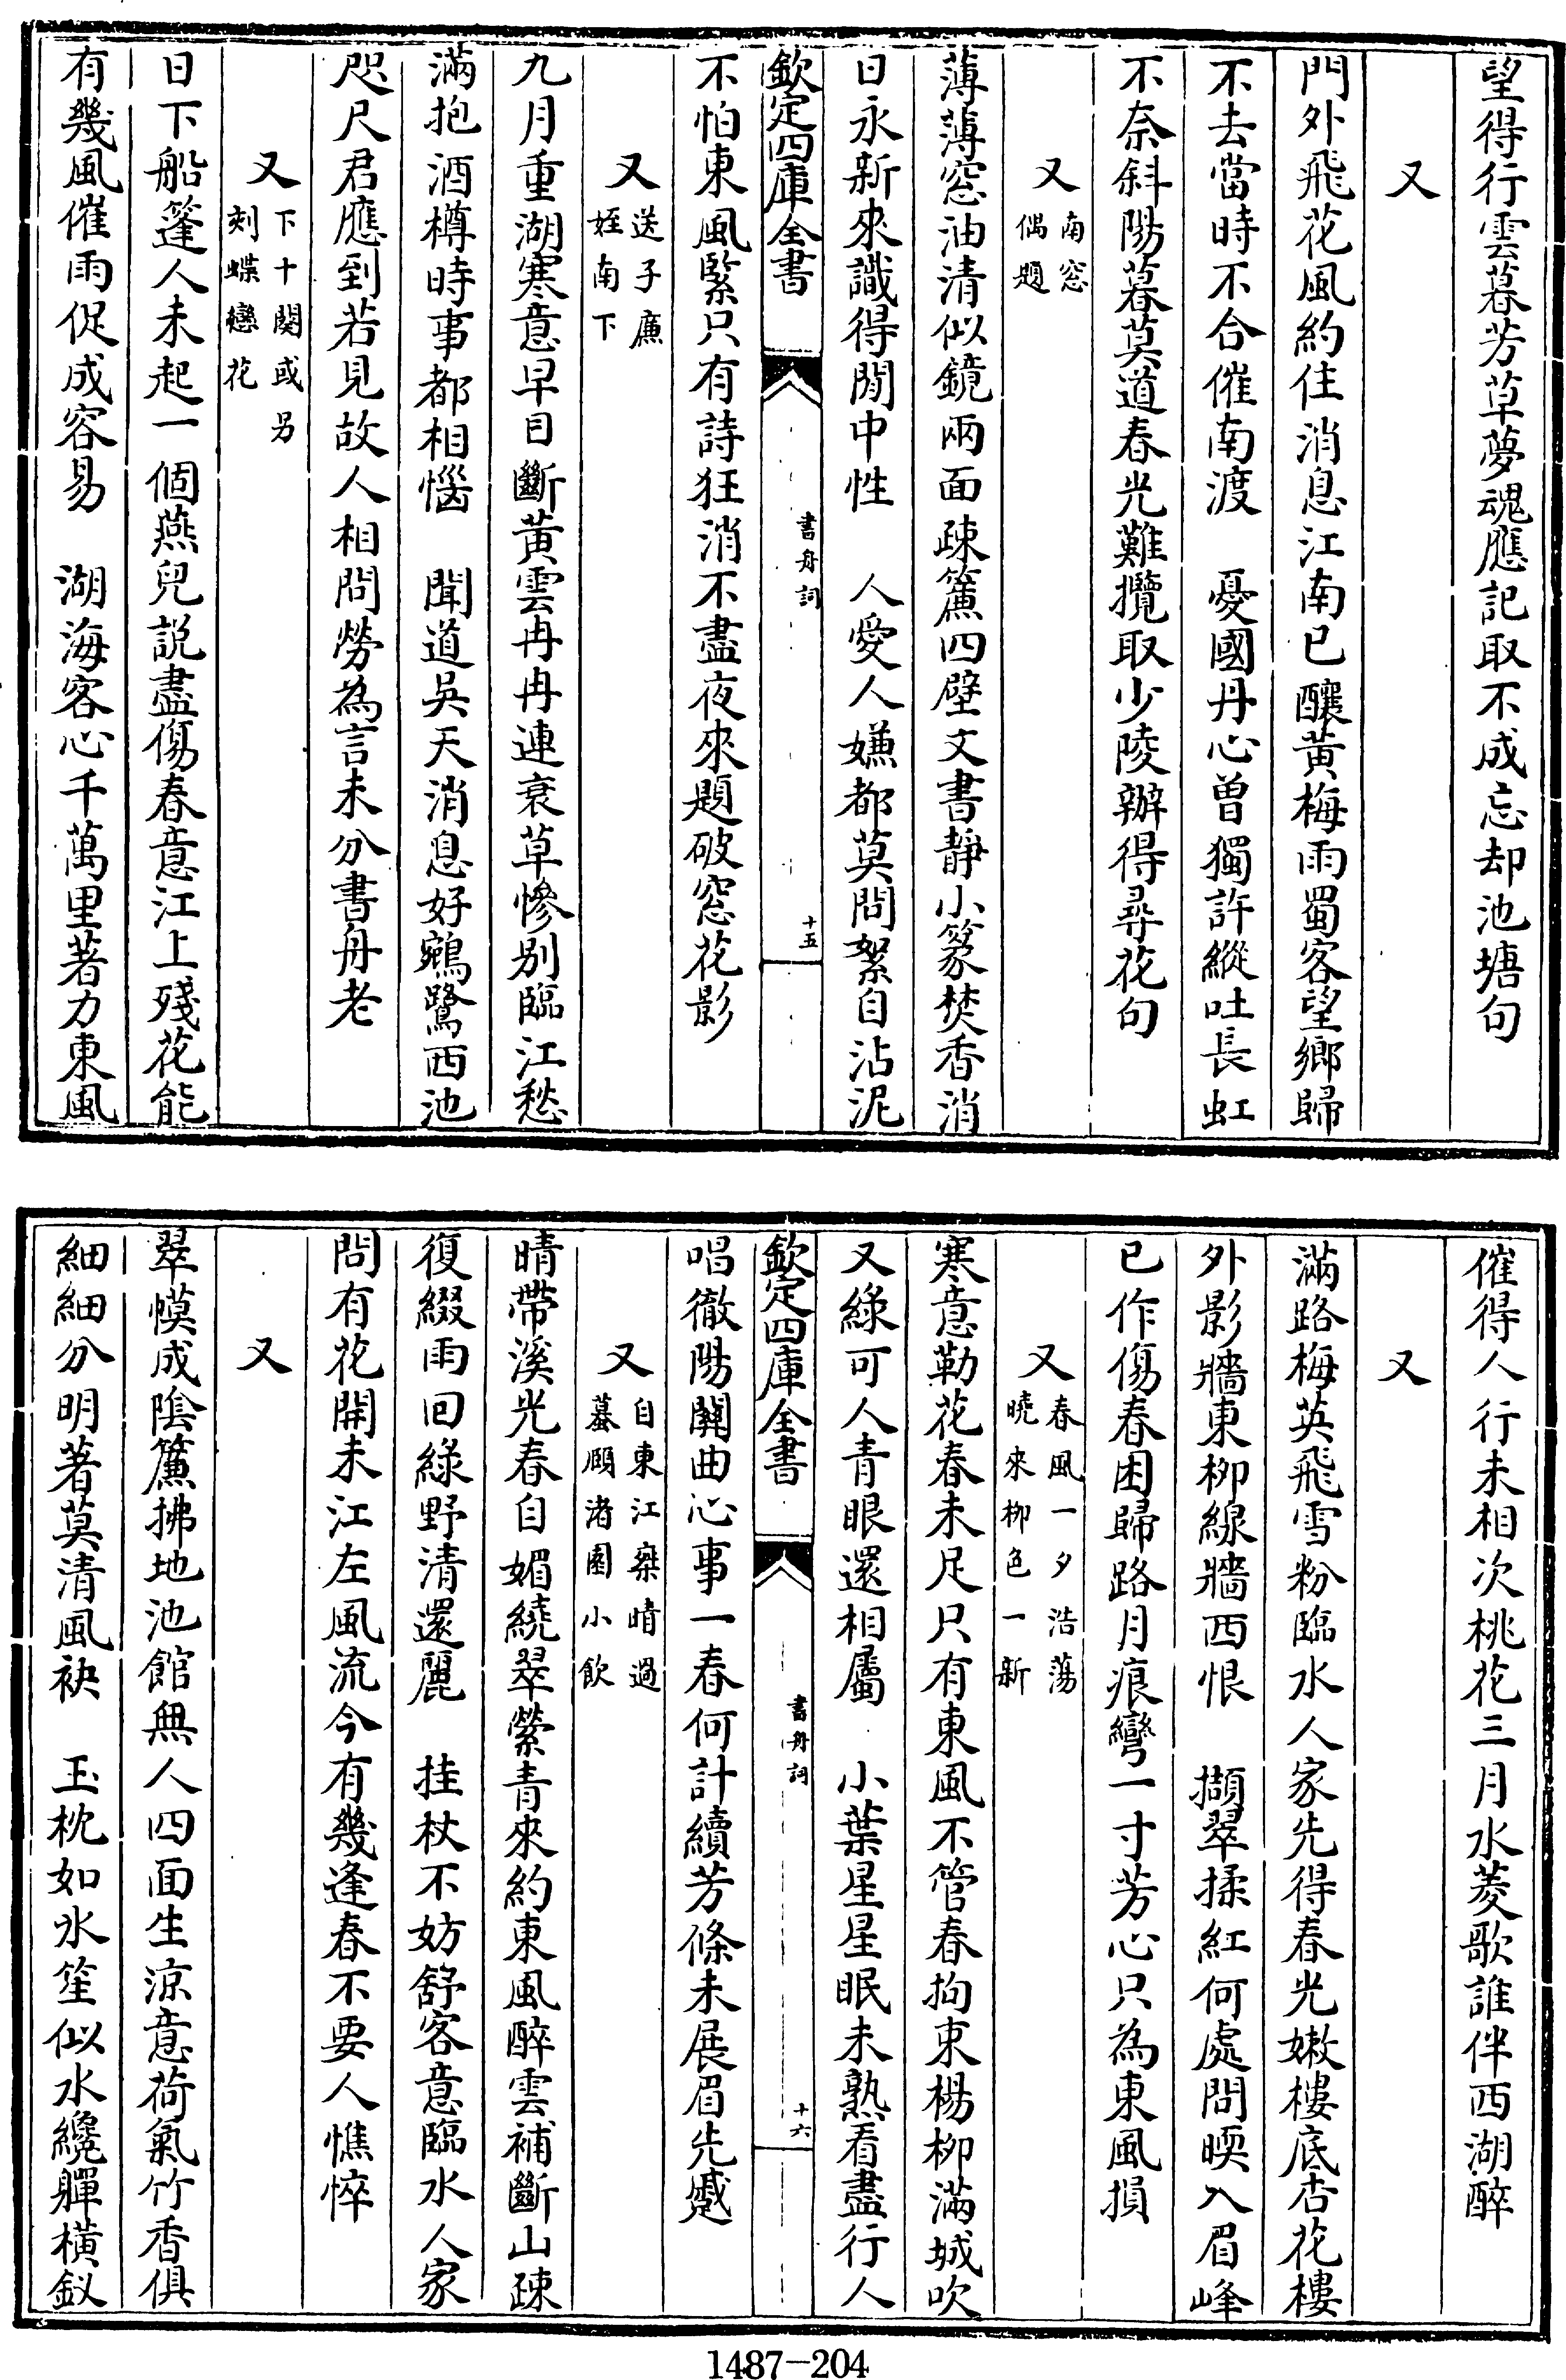 望得行雲暮芳草夢魂應記取不成忘却池塘句
又
門外飛花風約住消息江南已釀黃梅雨蜀客望鄉歸
不去當時不合催南渡　憂國丹心曾獨許縱吐長虹
不奈斜陽暮莫道春光難攬取少陵辦得尋花句
又 南窓偶題
薄薄窓油清似鏡兩面疎簾四壁文書靜小篆焚香消
日永新來識得閒中性　人愛人嫌都莫問絮自沾泥
欽定四庫全書
書舟詞
十五
不怕東風緊只有詩狂消不盡夜來題破窓花影
又 送子廉姪南下
九月重湖寒意早目斷黃雲冉冉連衰草慘别臨江愁
滿抱酒樽時事都相惱　聞道吳天消息好鵷鷺西池
咫尺君應到若見故人相問勞為言未分書舟老
又 下十闋或另刻蝶戀花
日下船篷人未起一個燕兒説盡傷春意江上殘花能
有幾風催雨促成容易　湖海客心千萬里著力東風
催得人行未相次桃花三月水菱歌誰伴西湖醉
又
滿路梅英飛雪粉臨水人家先得春光嫩樓底杏花樓
外影牆東柳線牆西恨　擷翠揉紅何處問暎入眉峰
已作傷春困歸路月痕彎一寸芳心只為東風損
又 春風一夕浩蕩曉來柳色一新
寒意勒花春未足只有東風不管春拘束楊柳滿城吹
又綠可人青眼還相屬　小葉星星眠未熟看盡行人
欽定四庫全書
書舟詞
十六
唱徹陽關曲心事一春何計續芳條未展眉先蹙
又 自東江乘晴過蟇頤渚園小飲
晴帶溪光春自媚繞翠縈青來約東風醉雲補斷山疎
復綴雨回綠野清還麗　挂杖不妨舒客意臨水人家
問有花開未江左風流今有幾逢春不要人憔悴
又
翠幙成陰簾拂地池館無人四面生涼意荷氣竹香俱
細細分明著莫清風袂　玉枕如氷笙似水纔嚲橫釵
1487-204